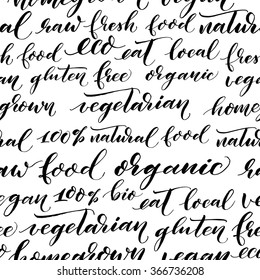 homegrown vegan
al raw fresh food natural
sh food eco eat local fres
an gluten free organic vega
grown vegetarian homeg
ral 100% natural food natur
aw food organic raw
egan 100% bio eat local ve
vegetarian gluten fre
homegrown vegan ec
shutterstock.com · 366736208